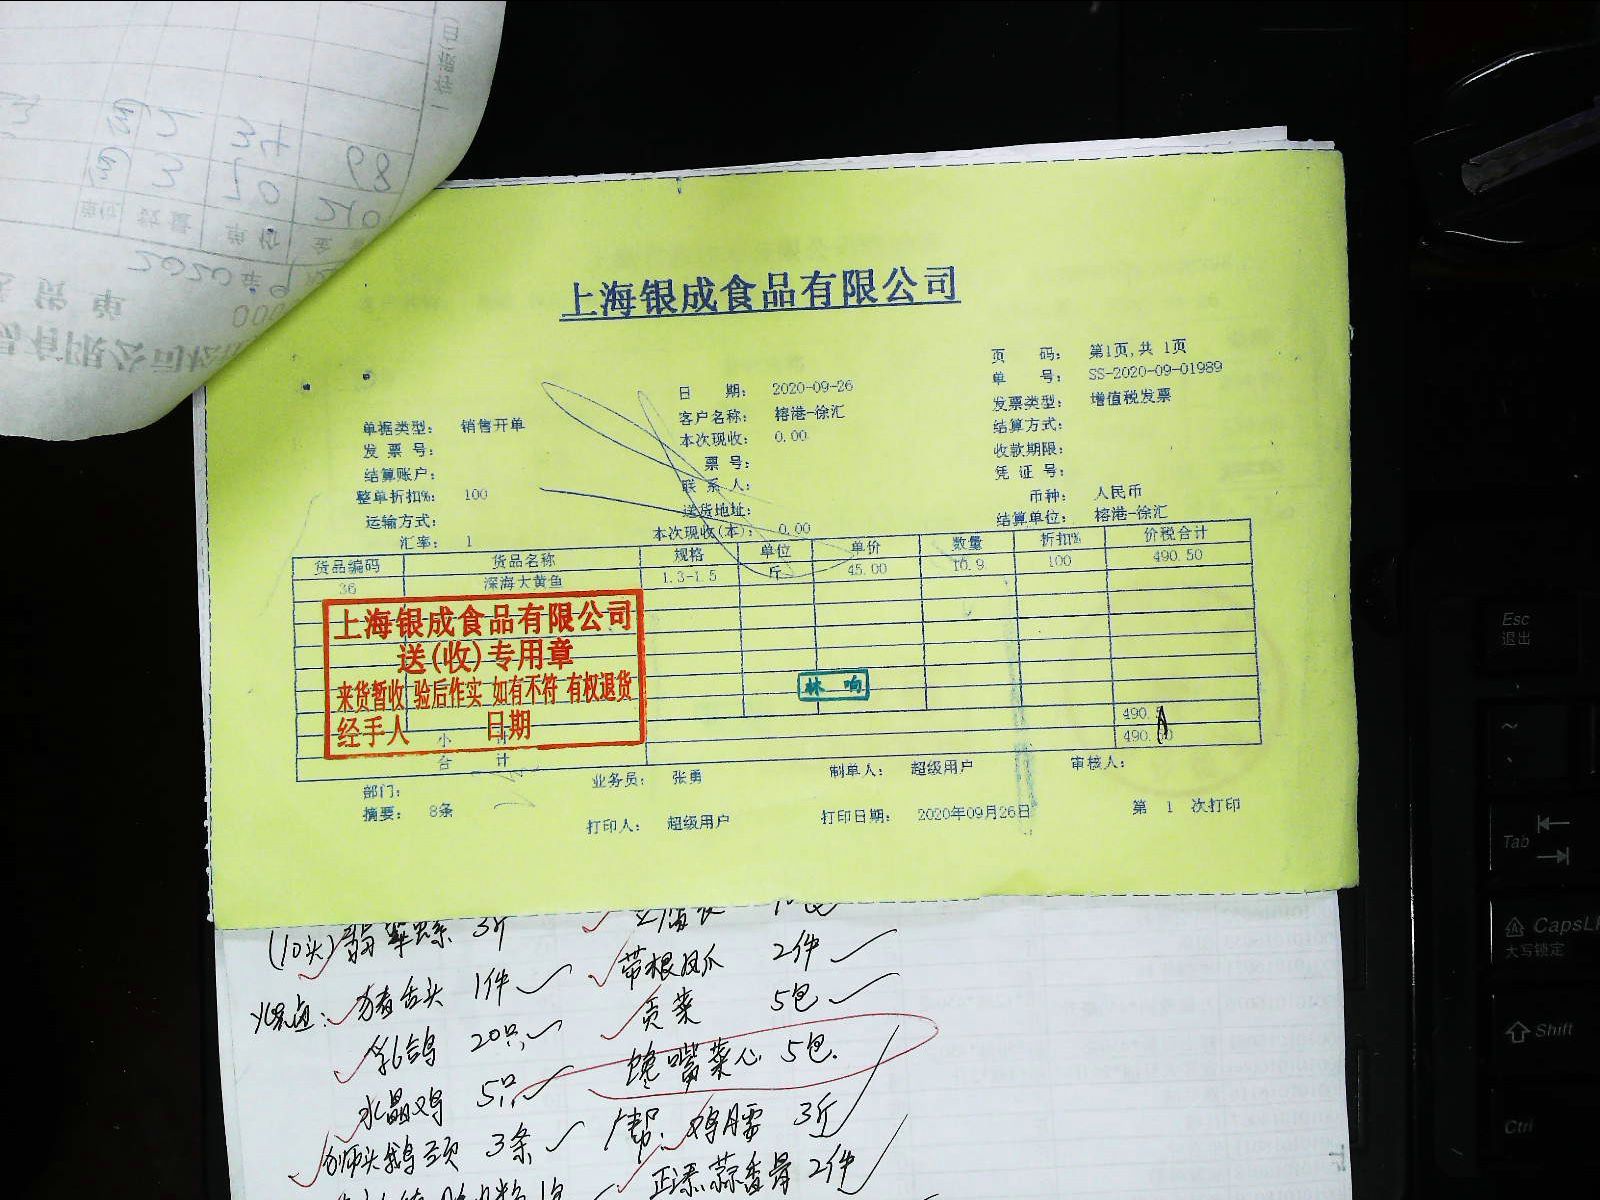 上海银成食品有限公司
页 码： 第1页,共 1页
日 期： 2020-09-26
单 号： SS-2020-09-01989
单据类型： 销售开单
客户名称： 榕港-徐汇
发票类型： 增值税发票
发 票 号：
本次现收： 0.00
结算方式：
结算账户：
票 号：
收款期限：
整单折扣%： 100
联 系 人：
凭 证 号：
运输方式：
送货地址：
币种： 人民币
汇率： 1
本次现收(本)： 0.00
结算单位： 榕港-徐汇
货品编码 货品名称 规格 单位 单价 数量 折扣% 价税合计
36 深海大黄鱼 1.3-1.5 斤 45.00 10.9 100 490.50
上海银成食品有限公司
送(收)专用章
来货暂收 验后作实 如有不符 有权退货
经手人 日期
林 响
小 计 490.5
合 计 490.
部门：
业务员： 张勇
制单人： 超级用户
审核人：
摘要： 8条
打印人： 超级用户
打印日期： 2020年09月26日
第 1 次打印
(10头) 翡翠螺 3斤
猪舌头 1件
带根凤爪 2件
乳鸽 20只
贡菜 5包
水晶鸡 5只
馋嘴菜心 5包
狮头鹅头颈 3条
3斤
蒜香骨 2件
Esc
退出
~
Tab
CapsL
大写锁定
Shift
Ctrl